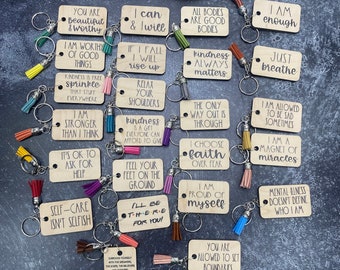 YOU ARE
Beautiful
& worthy
I can
& I will
ALL BODIES
ARE GOOD
BODIES
I AM
enough
I AM WORTHY
OF GOOD
THINGS
IF I FALL
I WILL
rise up
kindness
ALWAYS
matters
JUST
breathe
KINDNESS IS FREE
sprinkle
THAT STUFF
EVERYWHERE
RELAX
YOUR
SHOULDERS
STRENGTH
I AM
STRONGER
THAN I THINK
kindness
IS A GIFT
EVERYONE CAN
AFFORD TO GIVE
THE ONLY
WAY OUT IS
THROUGH
I AM ALLOWED
TO BE SAD
SOMETIMES
IT'S OK TO
ASK FOR
HELP
FEEL YOUR
FEET ON
THE GROUND
I CHOOSE
faith
OVER FEAR
I AM A
MAGNET OF
miracles
SELF-CARE
ISN'T SELFISH
I'LL BE
T•H•E•R•E
FOR YOU!
I AM
PROUD OF
myself
MENTAL ILLNESS
DOESN'T DEFINE
WHO I AM
YOU ARE
ALLOWED TO SET
BOUNDARIES